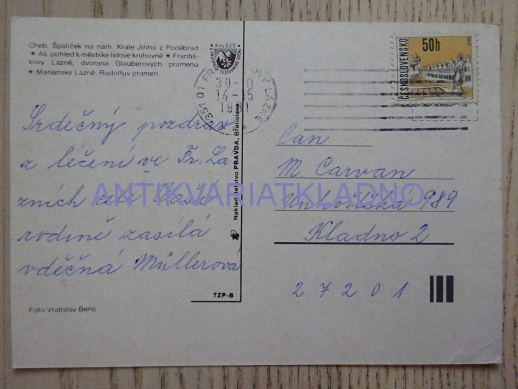 Cheb. Špalíček na nám. Krále Jiřího z Poděbrad
★ Aš, pohled k městské lidové knihovně ★ Františ-
kovy Lázně, dvorana Glauberových pramenů
★ Mariánské Lázně, Rudolfův pramen
Srdečný pozdrav
z léčení ve Fr. Lá
zních celé
rodině zasílá
vděčná Müllerová
Foto Vratislav Benc
Nakladatelství PRAVDA, Bratislava
TZP-B
351 01
ČESKOSLOVENSKO
50h
Pan
M. Carvan
Unhošťská 989
Kladno 2
27201
ANTIKVARIATKLADNO